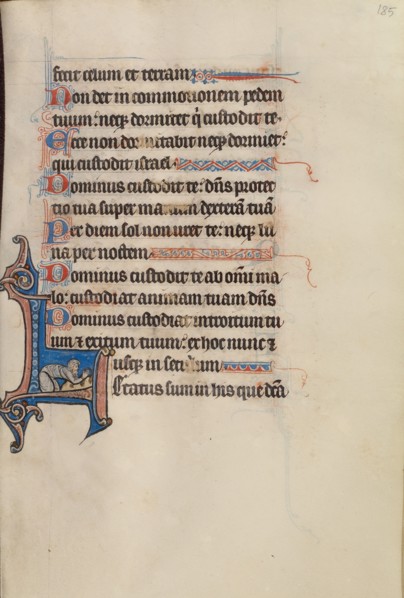 185
fecit celum et terram
Non det in commotionem pedem
tuum: neqꝫ dormitet q̇ custodit te.
Ecce non dormitabit neqꝫ dormiet:
qui custodit israel.
Dominus custodit te: dñs protec
tio tua super ma dexterā tuā
Per diem sol non uret te: neqꝫ lu
na per noctem
Dominus custodit te ab om̄i ma
lo: custodiat animam tuam dñs
Dominus custodiat introitum tu
um ⁊ exitum tuum: ex hoc nunc ⁊
usqꝫ in seculum
Letatus sum in his que dc̄a